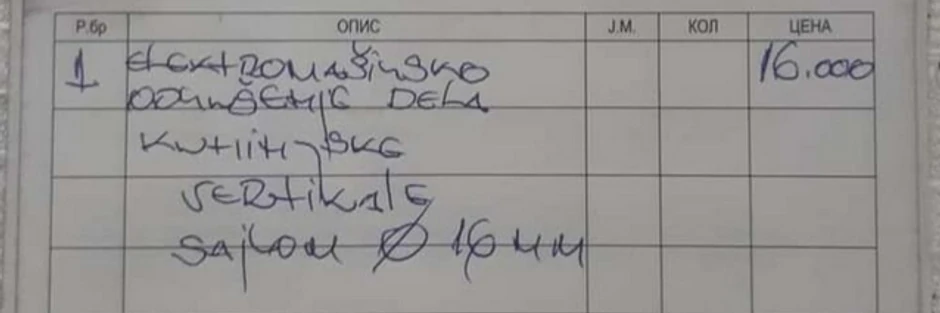 Р.бр ОПИС Ј.М. КОЛ ЦЕНА
1 ELEKTROMAŠINSKO 16.000
ODGUŠENJE DELA
KUHINJSKE
VERTIKALE
SAJLOM Ø 16 MM